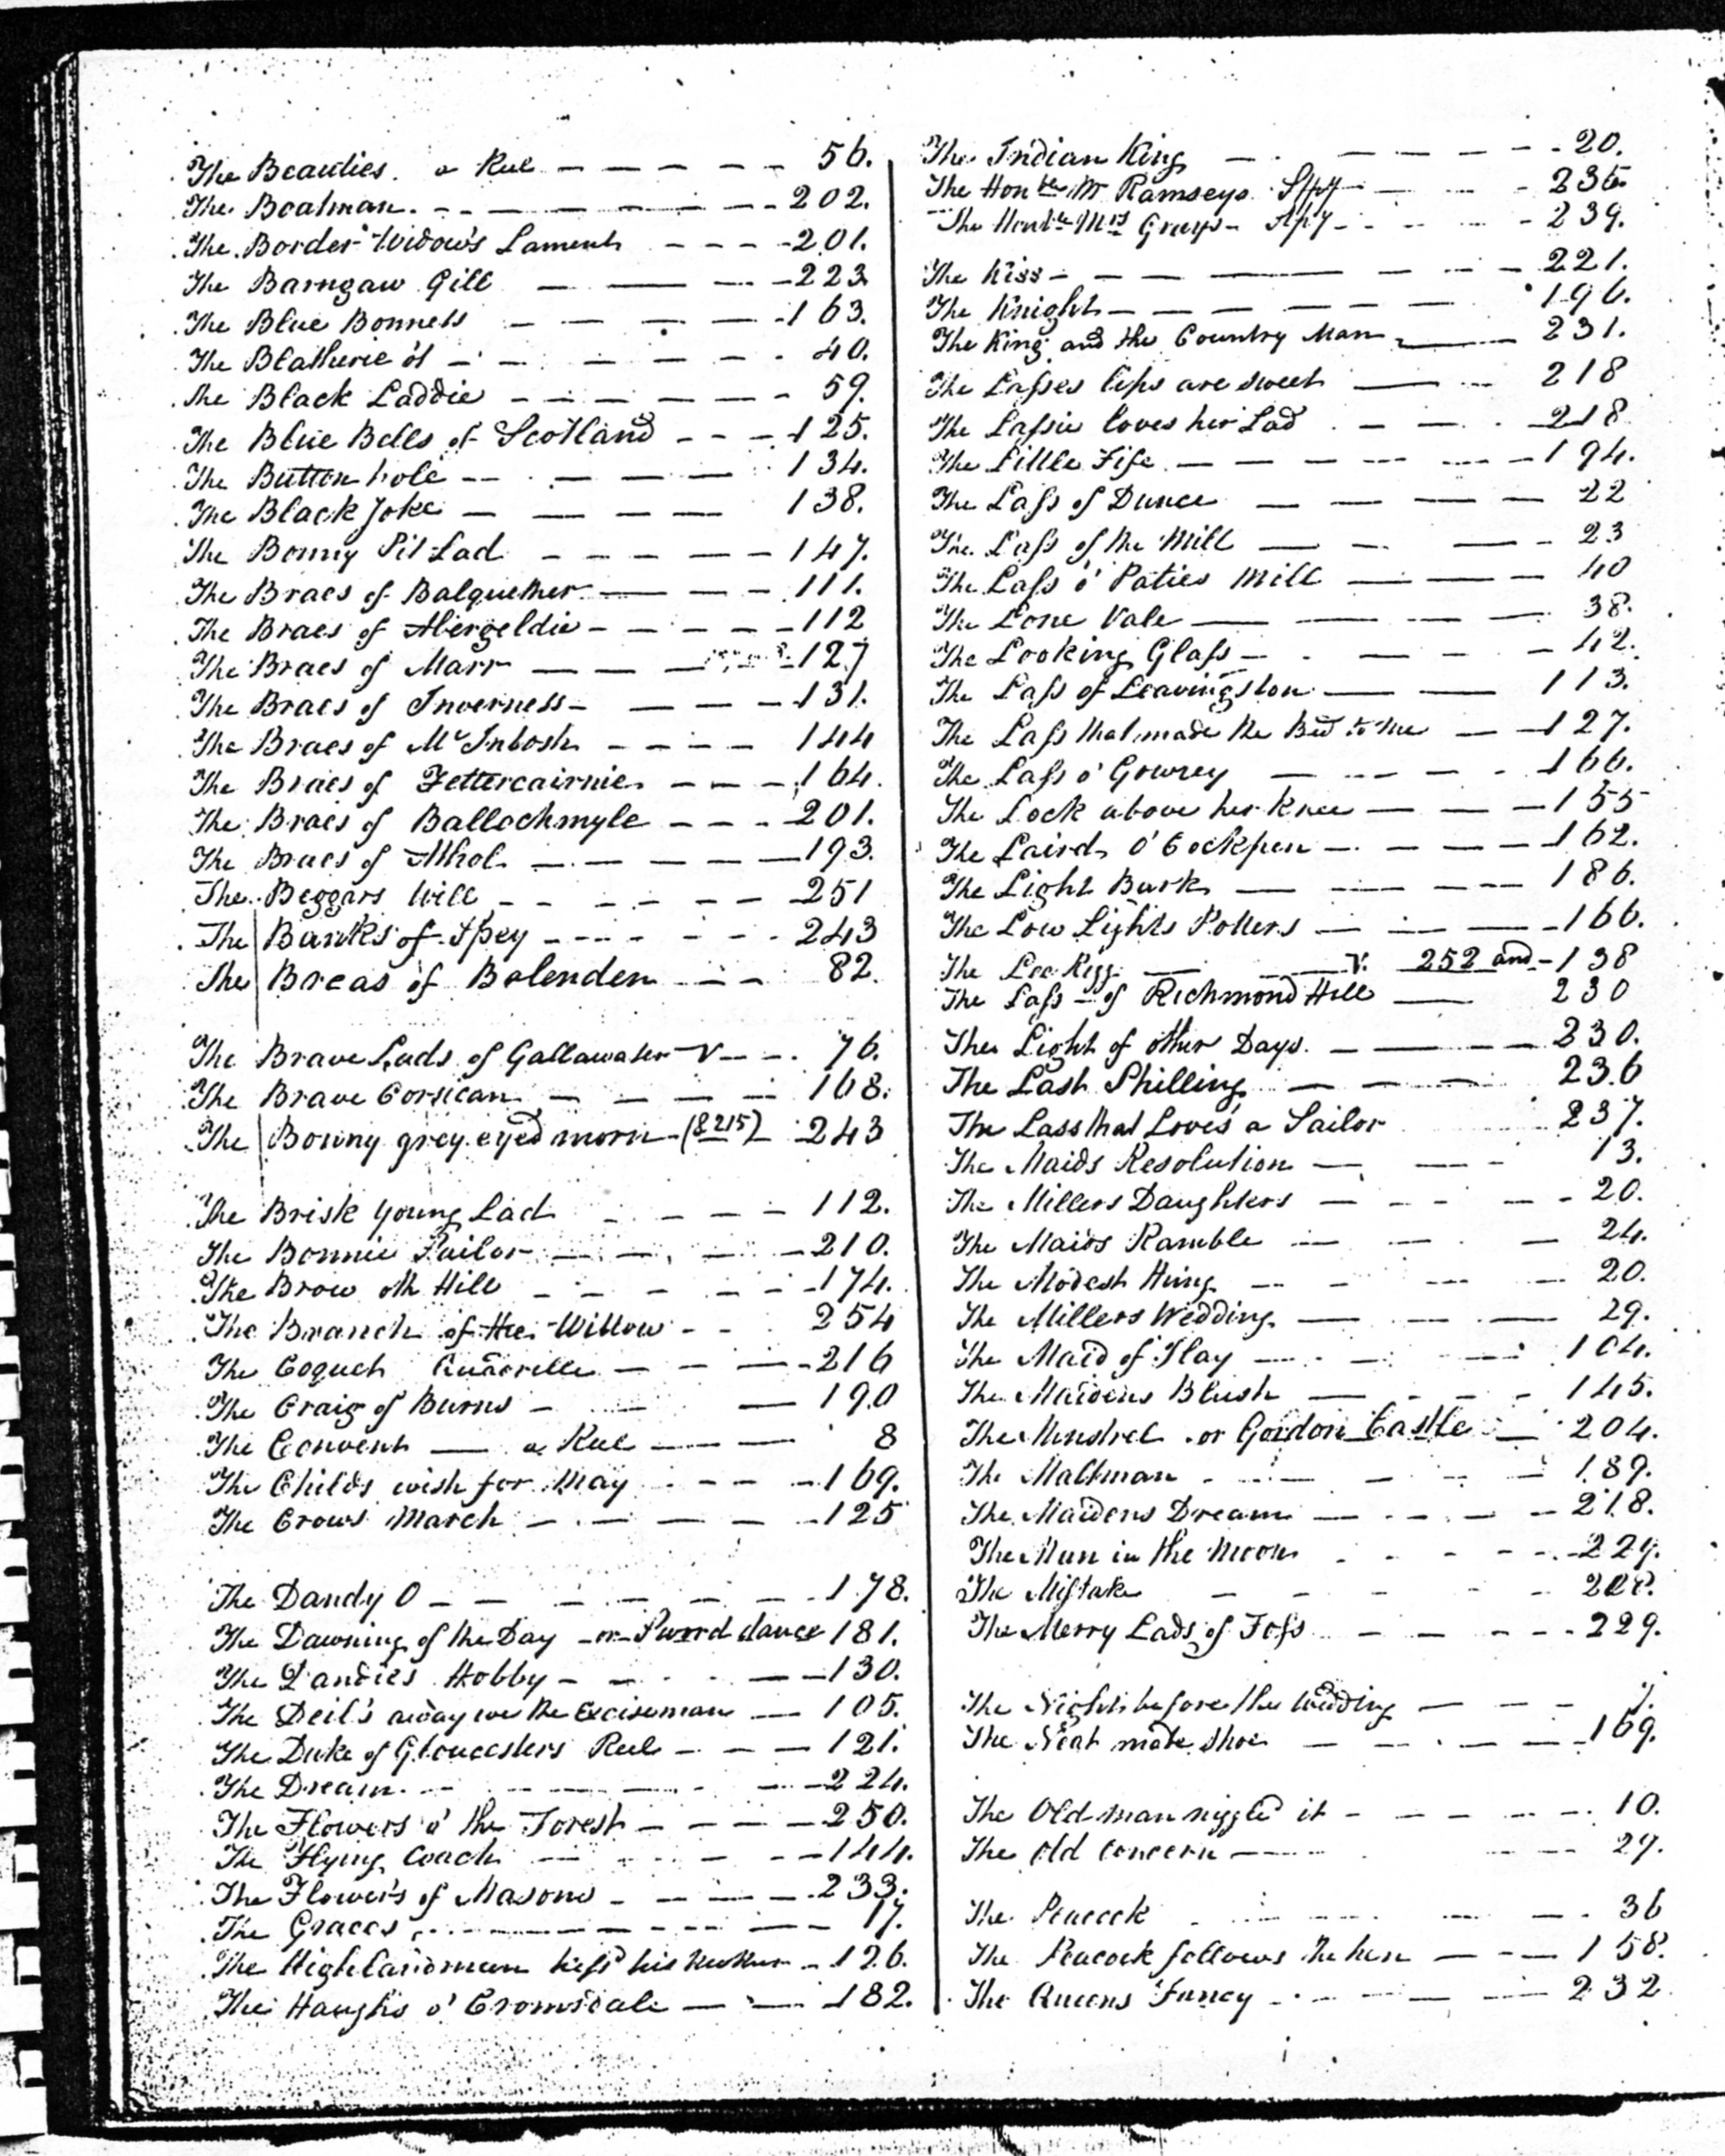 The Beauties. a Reel 56.
The Boatman. 202.
The Border Widow's Lament 201.
The Barngaw Gill 223
The Blue Bonnets 163.
The Blatherie o't 40.
The Black Laddie 59.
The Blue Bells of Scotland 125.
The Button hole 134.
The Black Joke 138.
The Bonny Pit Lad 147.
The Braes of Balquether 111.
The Braes of Abergeldie 112
The Braes of Marr 127
The Braes of Inverness 131.
The Braes of McIntosh 144
The Braes of Fettercairnie 164.
The Braes of Ballochmyle 201.
The Braes of Athol 193.
The Beggars Will 251
The Banks of Spey 243
The Breas of Balenden 82.
The Brave Lads of Gallawater V 76.
The Brave Corsican 168.
The Bonny grey eyed morn (& 215) 243
The Brisk Young Lad 112.
The Bonnie Sailor 210.
The Brow oth Hill 174.
The Branch of the Willow 254
The Coquet Quadrille 216
The Craig of Burns 190
The Convent a Reel 8
The Childs wish for May 169.
The Crows March 125
The Dandy O 178.
The Dawning of the Day or Sword dance 181.
The Dandies Hobby 130.
The Deil's away wi the Exciseman 105.
The Duke of Gloucesters Reel 121.
The Dream. 224.
The Flowers o' the Forest 250.
The Flying Coach 144.
The Flowers of Masons 233.
The Graces 17.
The Highlandman kifsd his 126.
The Haughs o' Cromsdale 182.
The Indian King 20.
The Honble Mr Ramseys Spy 235.
The Honble Mrs Grays Spy 239.
The Kiss 221.
The Knight 196.
The King and the Country Man 231.
The Lafses lips are sweet 218
The Lafsie loves her Lad 218
The Little Fife 194.
The Lafs of Dunce 22
The Lafs of the Mill 23
The Lafs o' Paties Mill 40
The Lone Vale 38.
The Looking Glafs 42.
The Lafs of Leavingston 113.
The Lafs that made the Bed to me 127.
The Lafs o' Gowrey 166.
The Lock above her Knee 155
The Laird O' Cockpen 162.
The Light Bark 186.
The Low Lights Potters 166.
The Lee Rigg V. 252 and 138
The Lafs of Richmond Hill 230
The Light of other Days. 230.
The Last Shilling 236
The Lass that Loves a Sailor 237.
The Maids Resolution 13.
The Millers Daughters 20.
The Maids Ramble 24.
The Modest Thing 20.
The Millers Wedding 29.
The Maid of Islay 104.
The Maidens Blush 145.
The Minstrel or Gordon Castle 204.
The Maltman 189.
The Maidens Dream 218.
The Man in the Moon 229.
The Miftake
The Merry Lads of Fofs 229.
The Night before the Wedding 7.
The Neat made Shoe 169.
The Old man niggled it 10.
The Old Concern 29.
The Peacock 36
The Peacock follows the hen 158.
The Queens Fancy 232